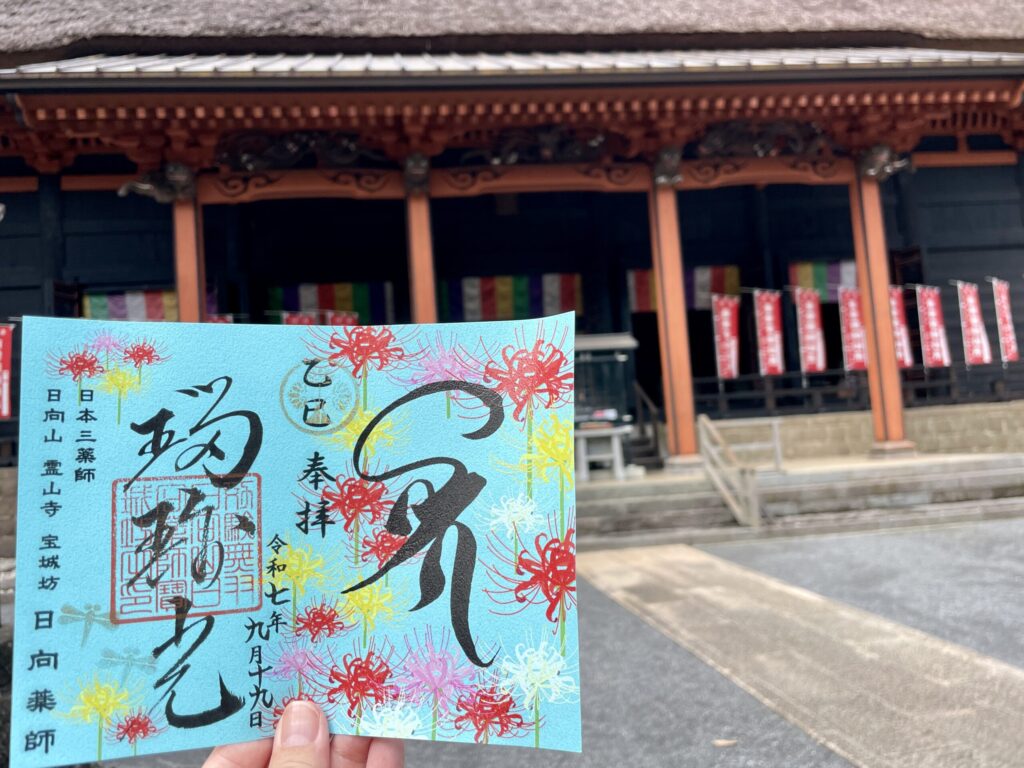 乙巳
奉拝
令和七年九月十九日
瑠璃光
日本三薬師
日向山 霊山寺 宝城坊
日向薬師